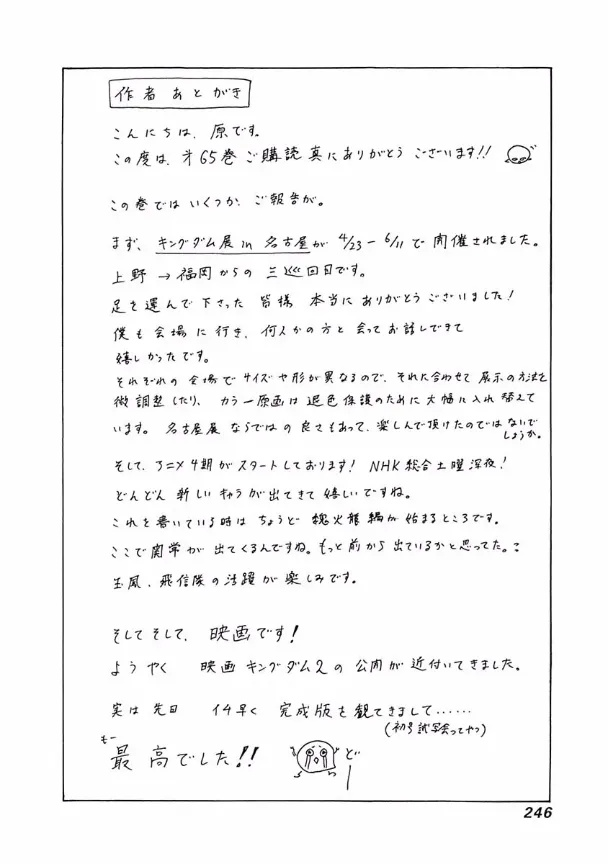 作者あとがき
こんにちは、原です。
この度は、才65巻ご購読真にありがとうございます!!
この巻ではいくつか、ご報告が。
まず、キングダム展in名古屋が4/23-6/11で開催されました。
上野→福岡からの三巡回目です。
足を運んで下さった皆様本当にありがとうございました!
僕も会場に行き、何人かの方と会ってお話しできて
嬉しかったです。
それぞれの会場でサイズや形が異なるので、それに合わせて展示の方法を
微調整したり、カラー原画は退色保護のために大幅に入れ替えて
います。名古屋展ならではの良さもあって、楽しんで頂けたのではないで
しょうか。
そして、アニメ4期がスタートしております!NHK総合土曜深夜!
どんどん新しいキャラが出てきて嬉しいですね。
これを書いている時はちょうど魏火龍編が始まるところです。
ここで関常が出てくるんですね。もっと前から出ているかと思ってた。
玉鳳、飛信隊の活躍が楽しみです。
そしてそして、映画です!
ようやく映画キングダム2の公開が近付いてきました。
実は先日イチ早く完成版を観てきまして……
(初号試写会ってやつ)
もー
最高でした!!
ど
ー
246